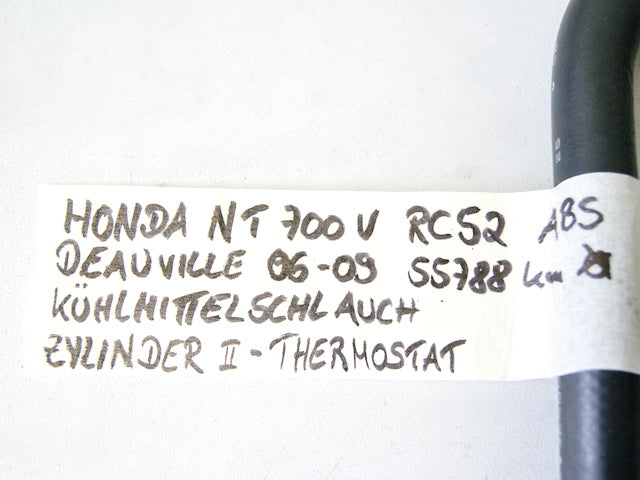 HONDA NT 700 V RC52 ABS
DEAUVILLE 06-09 55788 km
KÜHLMITTELSCHLAUCH
ZYLINDER II - THERMOSTAT